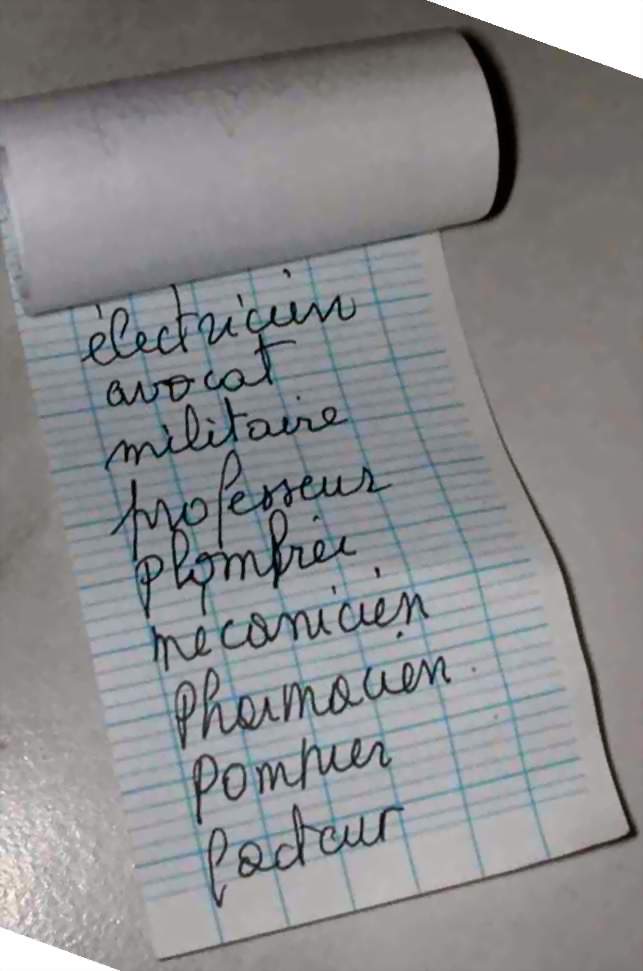 électricien
avocat
militaire
professeur
plombier
mecanicien
Pharmacien
Pompier
facteur